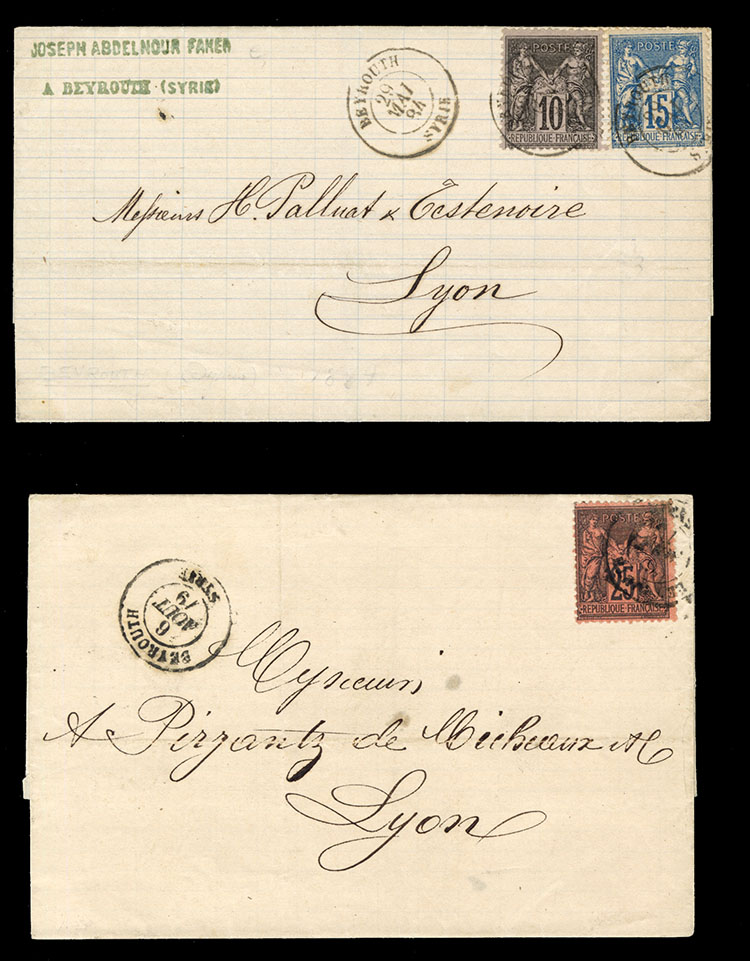 JOSEPH ABDELNOUR FAHER
A BEYROUTH (SYRIE)
BEYROUTH
29
MAI
84
SYRIE
POSTE
10
REPUBLIQUE FRANÇAISE
POSTE
15
REPUBLIQUE FRANÇAISE
Messieurs H. Palluat & Testenoire
Lyon
BEYROUTH 1884
POSTE
25
REPUBLIQUE FRANÇAISE
BEYROUTH
6
AOUT
79
SYRIE
Messieurs
A Pizzantz de Micheaux
Lyon